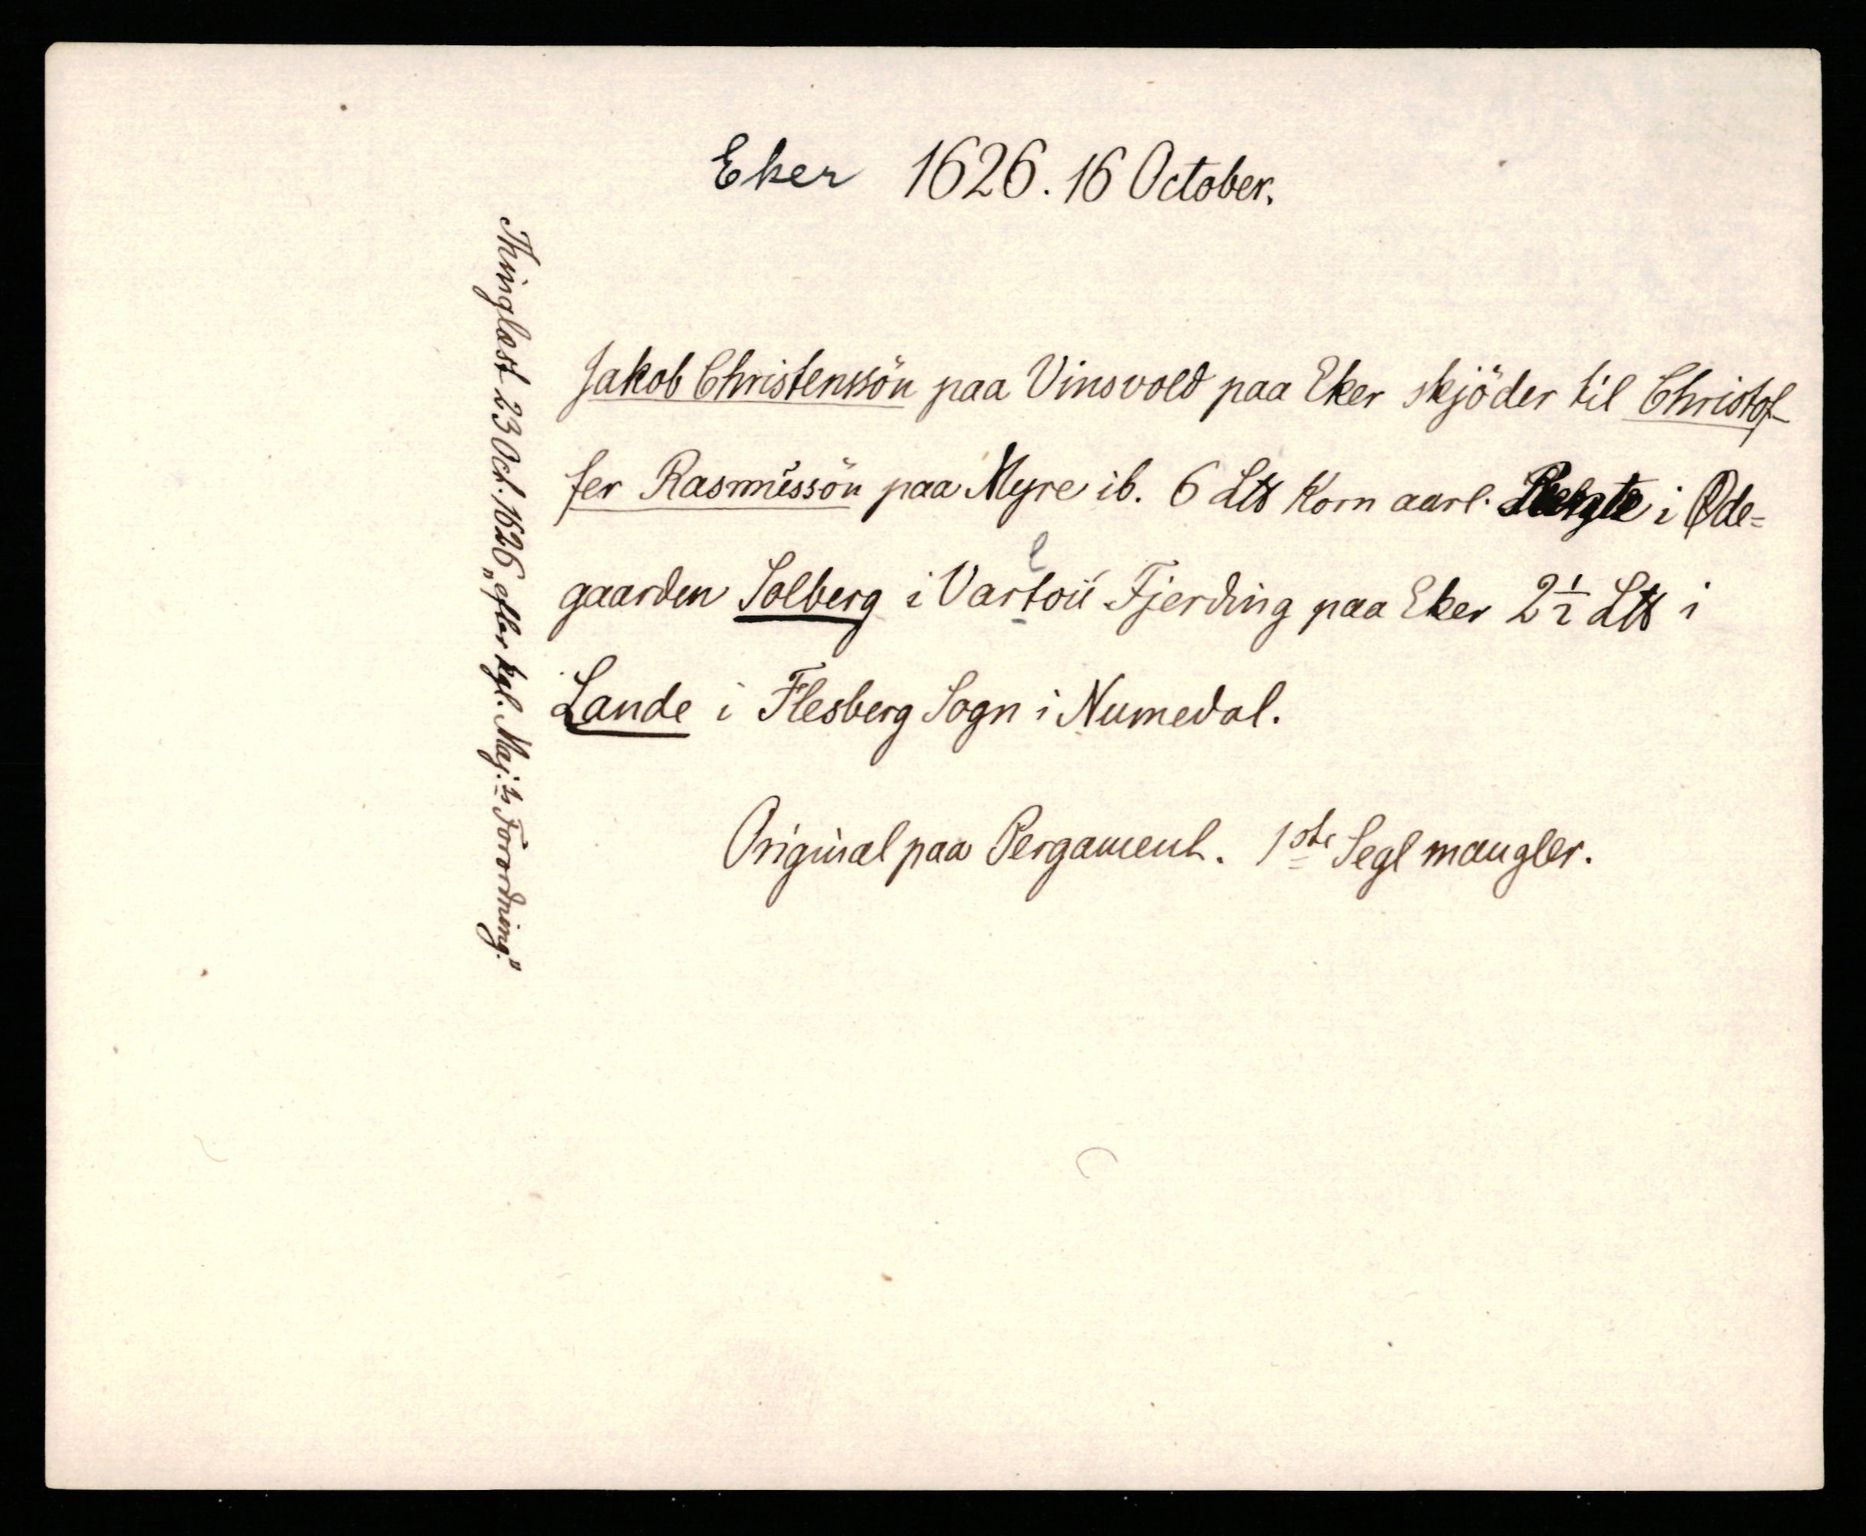 Eker 1626. 16 October.
Jakob Christenssön paa Vinsvold paa Eker skjöder til Christof-
fer Rasmŭssön paa Myre ib. 6 L℔ Korn aarl. i Øde=
gaarden Solberg i Fjerding paa Eker 2½ L℔ i
Lande i Flesberg Sogn i Numedal.
Original paa Pergament. 1ste Segl mangler.
Thinglæst 23 Oct. 1626 „efter kgl. Maj:ts Forordning."